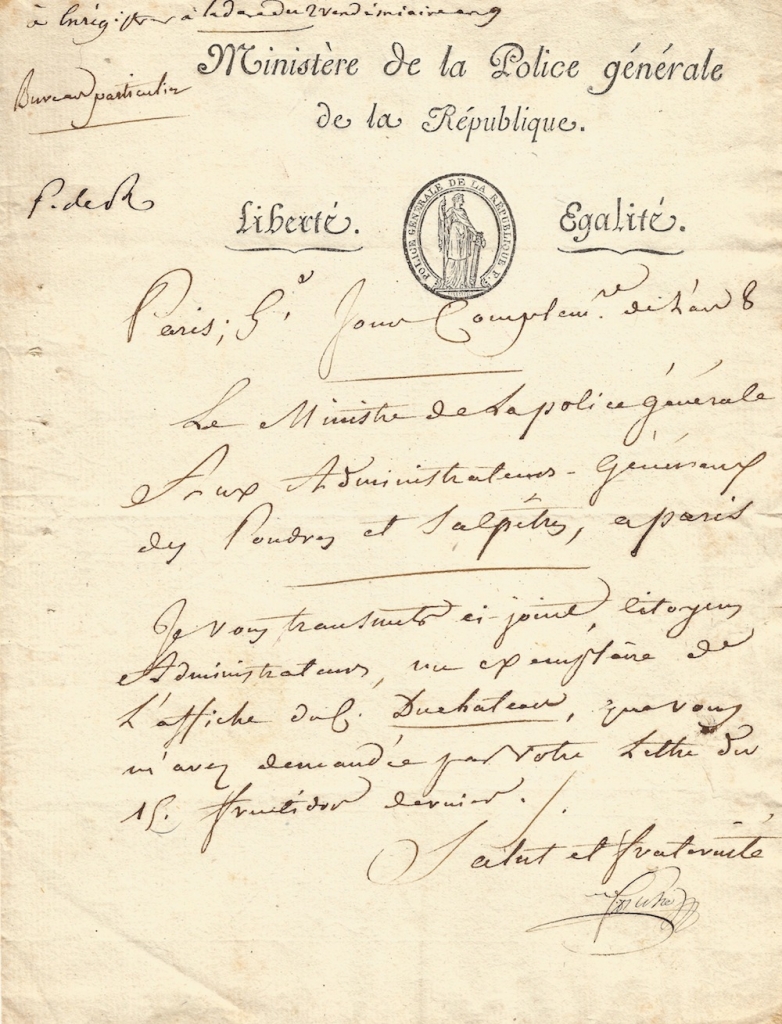 à Enregistrer à la date du 2 vendémiaire an 9
Ministère de la Police générale
de la République.
Bureau particulier
P. de R
Liberté.
POLICE GENERALE DE LA REPUBLIQUE F.
Egalité.
Paris, 5.e Jour Complem.re de L'an 8
Le Ministre de La police générale
Aux Administrateurs-Généraux
des Poudres et Salpêtres, a paris
Je vous transmets ci-joint, Citoyens
Administrateurs, un exemplaire de
L'affiche du C. Duchateau, que vous
m'avez demandée par votre Lettre du
15. fructidor dernier.
Salut et fraternité
Fouché